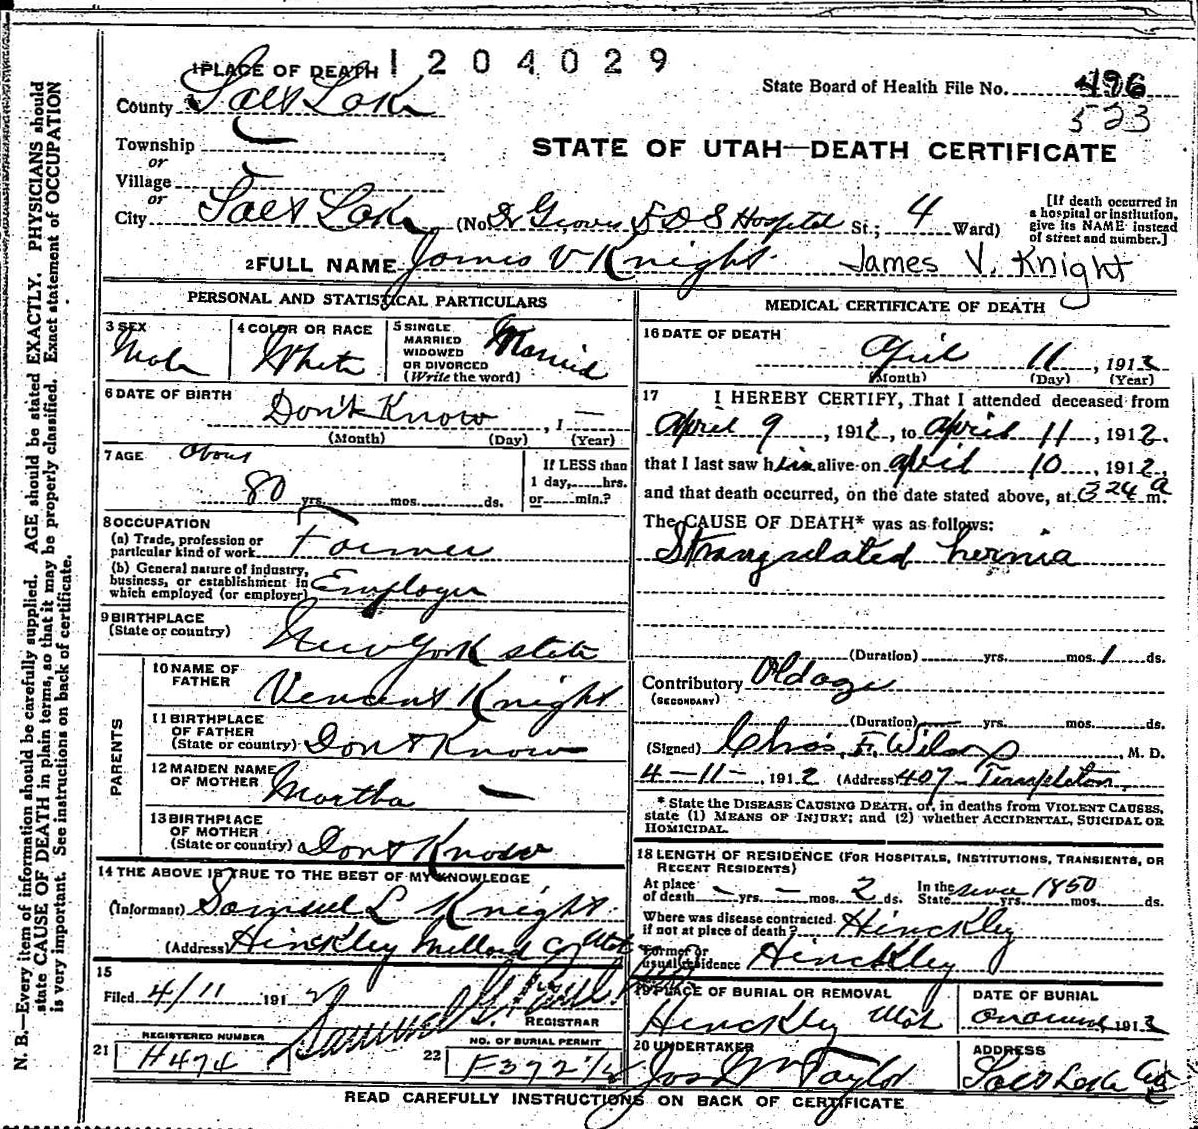 1 PLACE OF DEATH 1 2 0 4 0 2 9
County Salt Lake
State Board of Health File No. 496
523
Township
or
Village
or
STATE OF UTAH—DEATH CERTIFICATE
City Salt Lake (No. Dr Groves L D S Hospital St.; 4 Ward)
[If death occurred in
a hospital or institution,
give its NAME instead
of street and number.]
2 FULL NAME James V Knight James V. Knight
PERSONAL AND STATISTICAL PARTICULARS
3 SEX
Male
4 COLOR OR RACE
White
5 SINGLE
MARRIED
WIDOWED
OR DIVORCED
(Write the word)
Married
6 DATE OF BIRTH
Don't Know , 1 —
(Month) (Day) (Year)
7 AGE about
80 yrs. mos. ds.
If LESS than
1 day, hrs.
or min.?
8 OCCUPATION
(a) Trade, profession or
particular kind of work Farmer
(b) General nature of industry,
business, or establishment in
which employed (or employer) Employer
9 BIRTHPLACE
(State or country) New York state
PARENTS
10 NAME OF
FATHER Vencent Knight
11 BIRTHPLACE
OF FATHER
(State or country) Dont Know
12 MAIDEN NAME
OF MOTHER Martha —
13 BIRTHPLACE
OF MOTHER
(State or country) Dont Know
14 THE ABOVE IS TRUE TO THE BEST OF MY KNOWLEDGE
(Informant) Samuel L Knight
(Address) Hinckley Millard Co Utah
15
Filed 4/11 191 2
REGISTRAR
21 REGISTERED NUMBER
H474
22 NO. OF BURIAL PERMIT
F372 1/2
MEDICAL CERTIFICATE OF DEATH
16 DATE OF DEATH
April 11 , 1912
(Month) (Day) (Year)
17 I HEREBY CERTIFY, That I attended deceased from
April 9 , 1912, to April 11 , 1912.
that I last saw him alive on april 10 , 1912,
and that death occurred, on the date stated above, at 3 24 a m.
The CAUSE OF DEATH* was as follows:
Strangulated hernia
(Duration) yrs. mos. 1 ds.
Contributory Old age
(SECONDARY)
(Duration) yrs. mos. ds.
(Signed) Chas. F. Wilcox M. D.
4-11- , 1912 (Address) 407 Templeton.
* State the DISEASE CAUSING DEATH, or, in deaths from VIOLENT CAUSES,
state (1) MEANS OF INJURY; and (2) whether ACCIDENTAL, SUICIDAL OR
HOMICIDAL.
18 LENGTH OF RESIDENCE (FOR HOSPITALS, INSTITUTIONS, TRANSIENTS, OR
RECENT RESIDENTS)
At place
of death - yrs. - mos. 2 ds.
In the
State since 1850 yrs. mos. ds.
Where was disease contracted.
if not at place of death? Hinckley
Former or
usual residence Hinckley
19 PLACE OF BURIAL OR REMOVAL
Hinckley Utah
DATE OF BURIAL
1912
20 UNDERTAKER
Jos Wm Taylor
ADDRESS
Salt Lake City
READ CAREFULLY INSTRUCTIONS ON BACK OF CERTIFICATE
N. B.—Every item of information should be carefully supplied. AGE should be stated EXACTLY. PHYSICIANS should
state CAUSE OF DEATH in plain terms, so that it may be properly classified. Exact statement of OCCUPATION
is very important. See instructions on back of certificate.